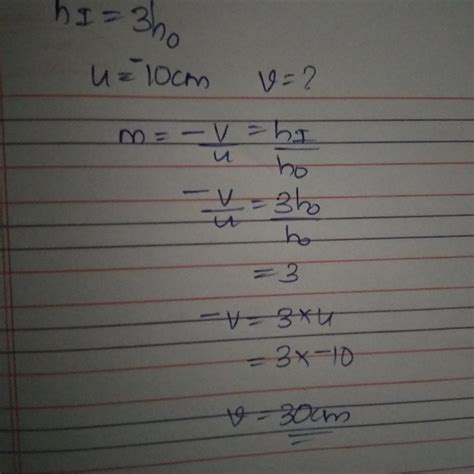 hI = 3ho
u = -10cm v = ?
m = -v/u = hI/ho
-v/u = 3ho/ho
= 3
-v = 3×u
= 3×-10
v = 30cm